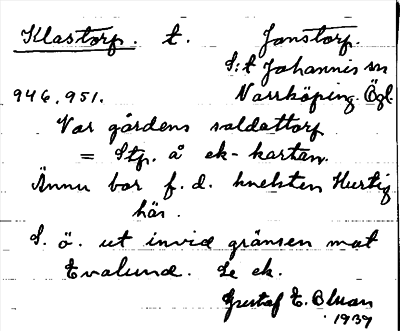 Klastorp. t. Janstorp.
S:t Johannis sn
946.951. Norrköping. Ögl.
Var gårdens soldattorp
= Stp. å ek-kartan.
Ännu bor f.d. knekten Hurtig
här.
S.ö. ut invid gränsen mot
Evalund. Se ek.
Gustaf E. Bluan
1939